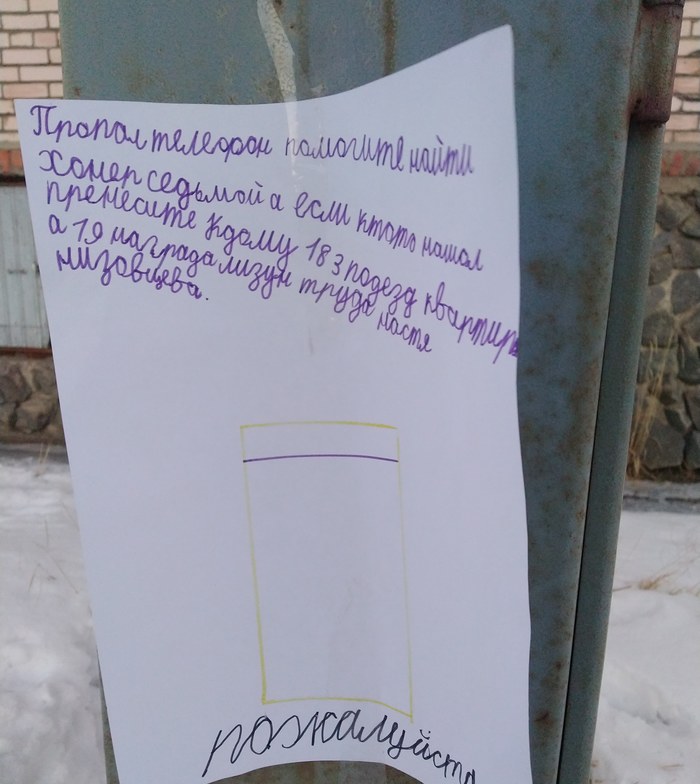 Пропал телефон помогите найти
хонер седьмой а если ктото нашол
пренесите кдому 18 3 подезд квартира
а 19 награда лизун труда настя
низовцева.
пожалуйста